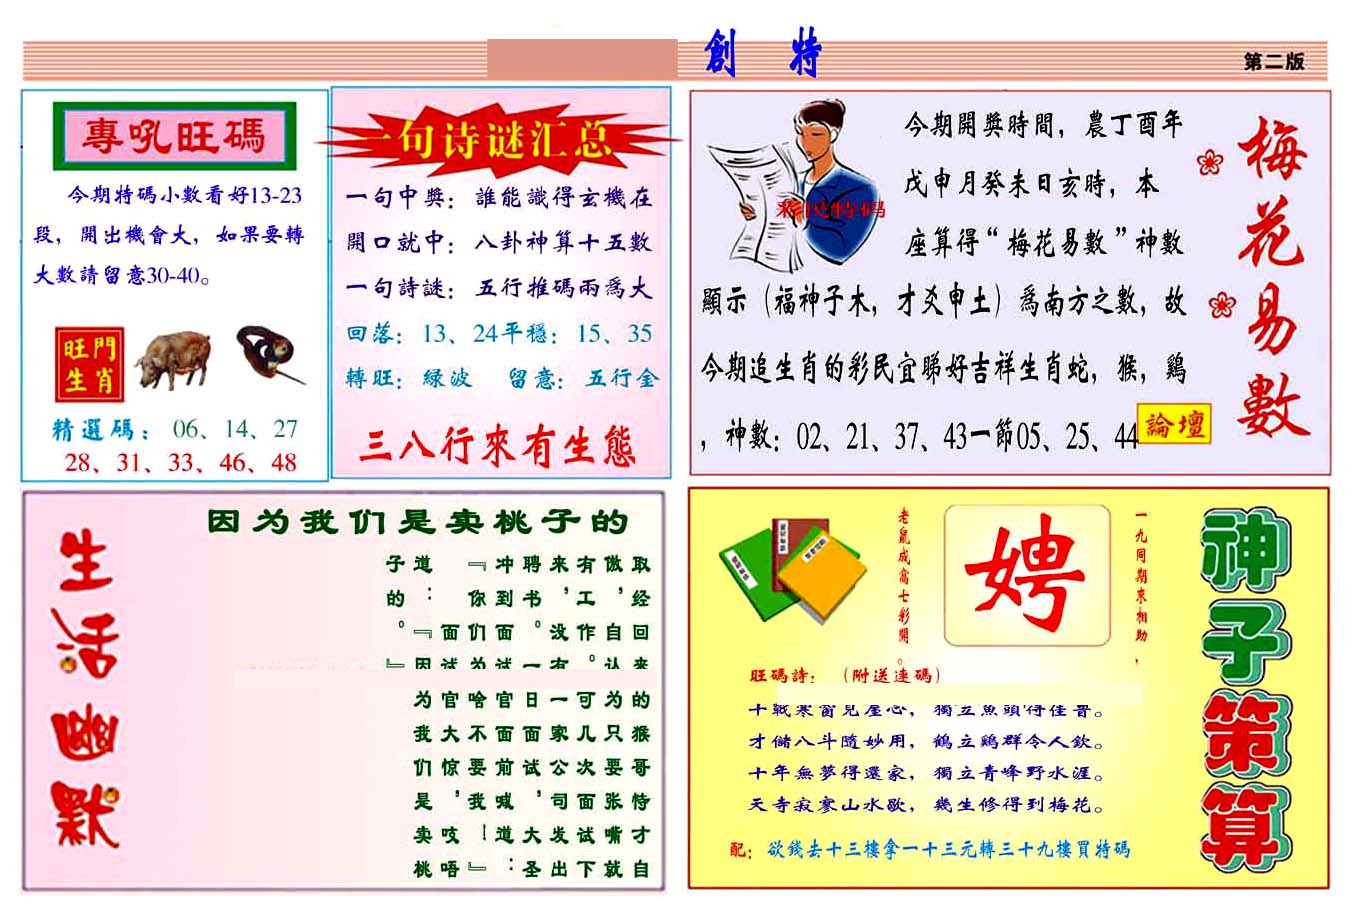 創 特
第二版
專吼旺碼
今期特碼小數看好13-23
段，開出機會大，如果要轉
大數請留意30-40。
旺門
生肖
精選碼：06、14、27
28、31、33、46、48
一句诗谜汇总
一句中獎：誰能識得玄機在
開口就中：八卦神算十五數
一句詩謎：五行推碼兩爲大
回落：13、24平穩：15、35
轉旺：綠波 留意：五行金
三八行來有生態
梅花易數
今期開獎時間，農丁酉年
戊申月癸未日亥時，本
座算得“梅花易數”神數
顯示（福神子木，才爻申土）爲南方之數，故
今期追生肖的彩民宜睇好吉祥生肖蛇，猴，鷄
，神數：02、21、37、43一節05、25、44
論壇
生活幽默
因为我们是卖桃子的
取经回来的猴哥恃才
傲，自认为只要张嘴就
有工作。可几次面试下
来，没有一家公司发出
聘书。一日面试，大圣
冲到面试官面前喊道：
『你们为啥不要我！』
面试官大惊，吱唔
道：『因为我们是卖桃
子的。』
神子策算
一九同期來相助，
娉
老鼠成當士彩開。
旺碼詩：（附送連碼）
十戰寒窗見屋心，獨立魚頭得佳音。
才儲八斗隨妙用，鶴立鷄群令人欽。
十年無夢得還家，獨立青峰野水涯。
天寺寂寥山水歇，幾生修得到梅花。
配：欲錢去十三樓拿一十三元轉三十九樓買特碼